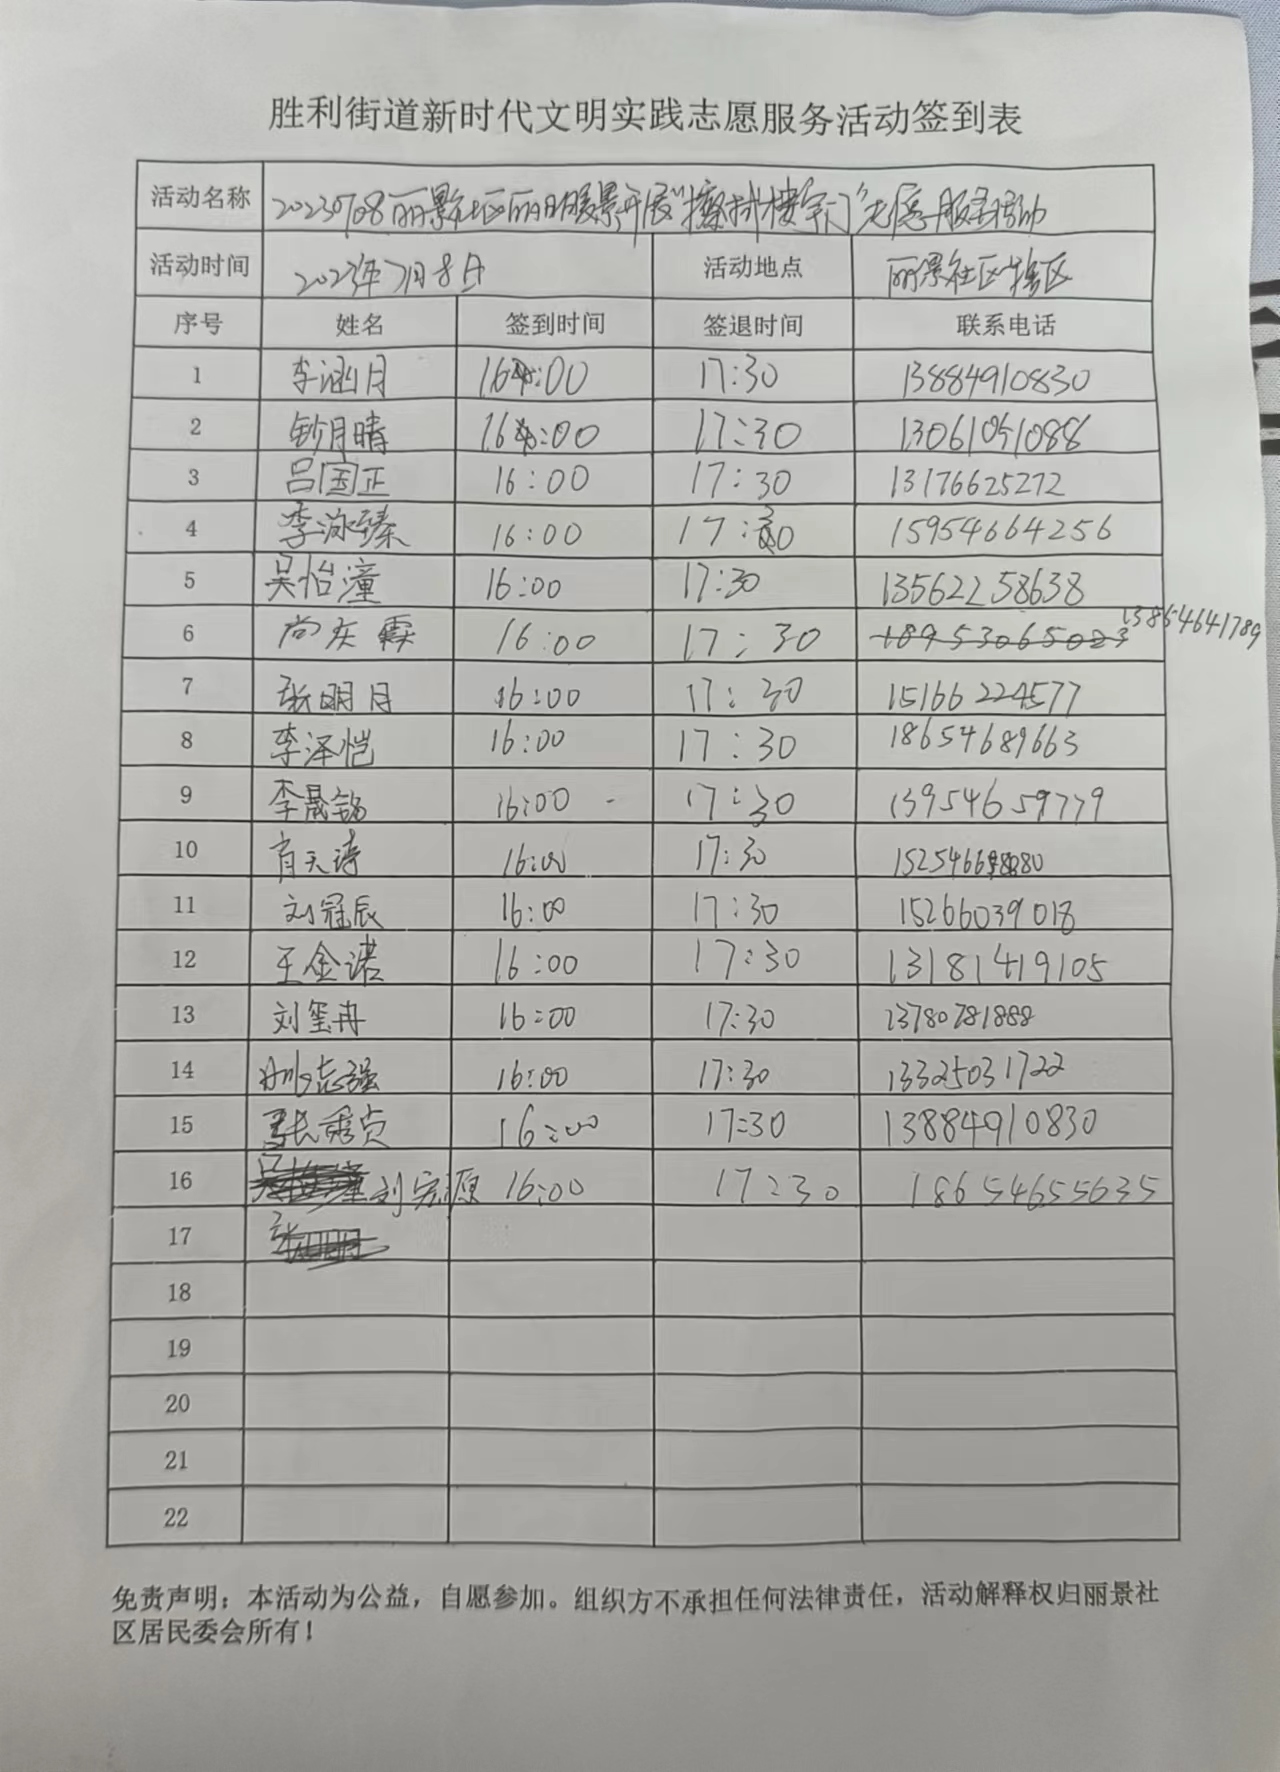 胜利街道新时代文明实践志愿服务活动签到表
活动名称 20230708丽景社区丽明暖景开展"擦拭楼宇门"志愿服务活动
活动时间 2023年7月8日 活动地点 丽景社区辖区
序号 姓名 签到时间 签退时间 联系电话
1 李涵月 16:00 17:30 13884910830
2 钞月晴 16:00 17:30 13061051088
3 吕国正 16:00 17:30 13176625272
4 李泳臻 16:00 17:30 15954664256
5 吴怡潼 16:00 17:30 13562258638
6 尚庆霖 16:00 17:30 18953065023 13864641789
7 张明月 16:00 17:30 15166224577
8 李泽恺 16:00 17:30 18654689663
9 李晟铭 16:00 17:30 13954659779
10 肖天诗 16:00 17:30
11 刘冠辰 16:00 17:30 15266039018
12 王金诺 16:00 17:30 13181419105
13 刘玺冉 16:00 17:30 13780781888
14 志强 16:00 17:30 13325031722
15 张秀贞 16:00 17:30 13884910830
16 刘宏源 16:00 17:30 18654655635
17
18
19
20
21
22
免责声明：本活动为公益，自愿参加。组织方不承担任何法律责任，活动解释权归丽景社
区居民委会所有！